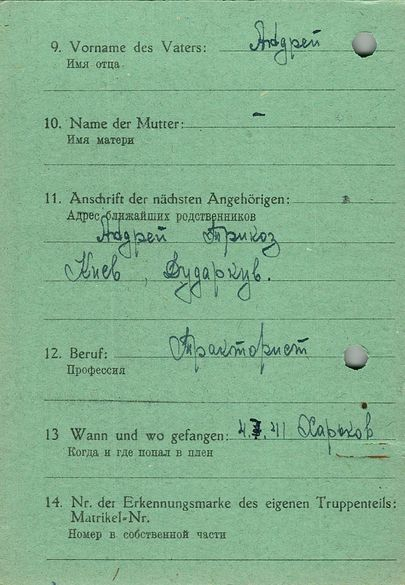 9. Vorname des Vaters: Андрей
Имя отца
10. Name der Mutter: –
Имя матери
11. Anschrift der nächsten Angehörigen:
Адрес ближайших родственников
Андрей Трикоз
Киев, Бударкув.
12. Beruf: Тракторист
Профессия
13 Wann und wo gefangen: 41 Харьков
Когда и где попал в плен
14. Nr. der Erkennungsmarke des eigenen Truppenteils:
Matrikel-Nr.
Номер в собственной части